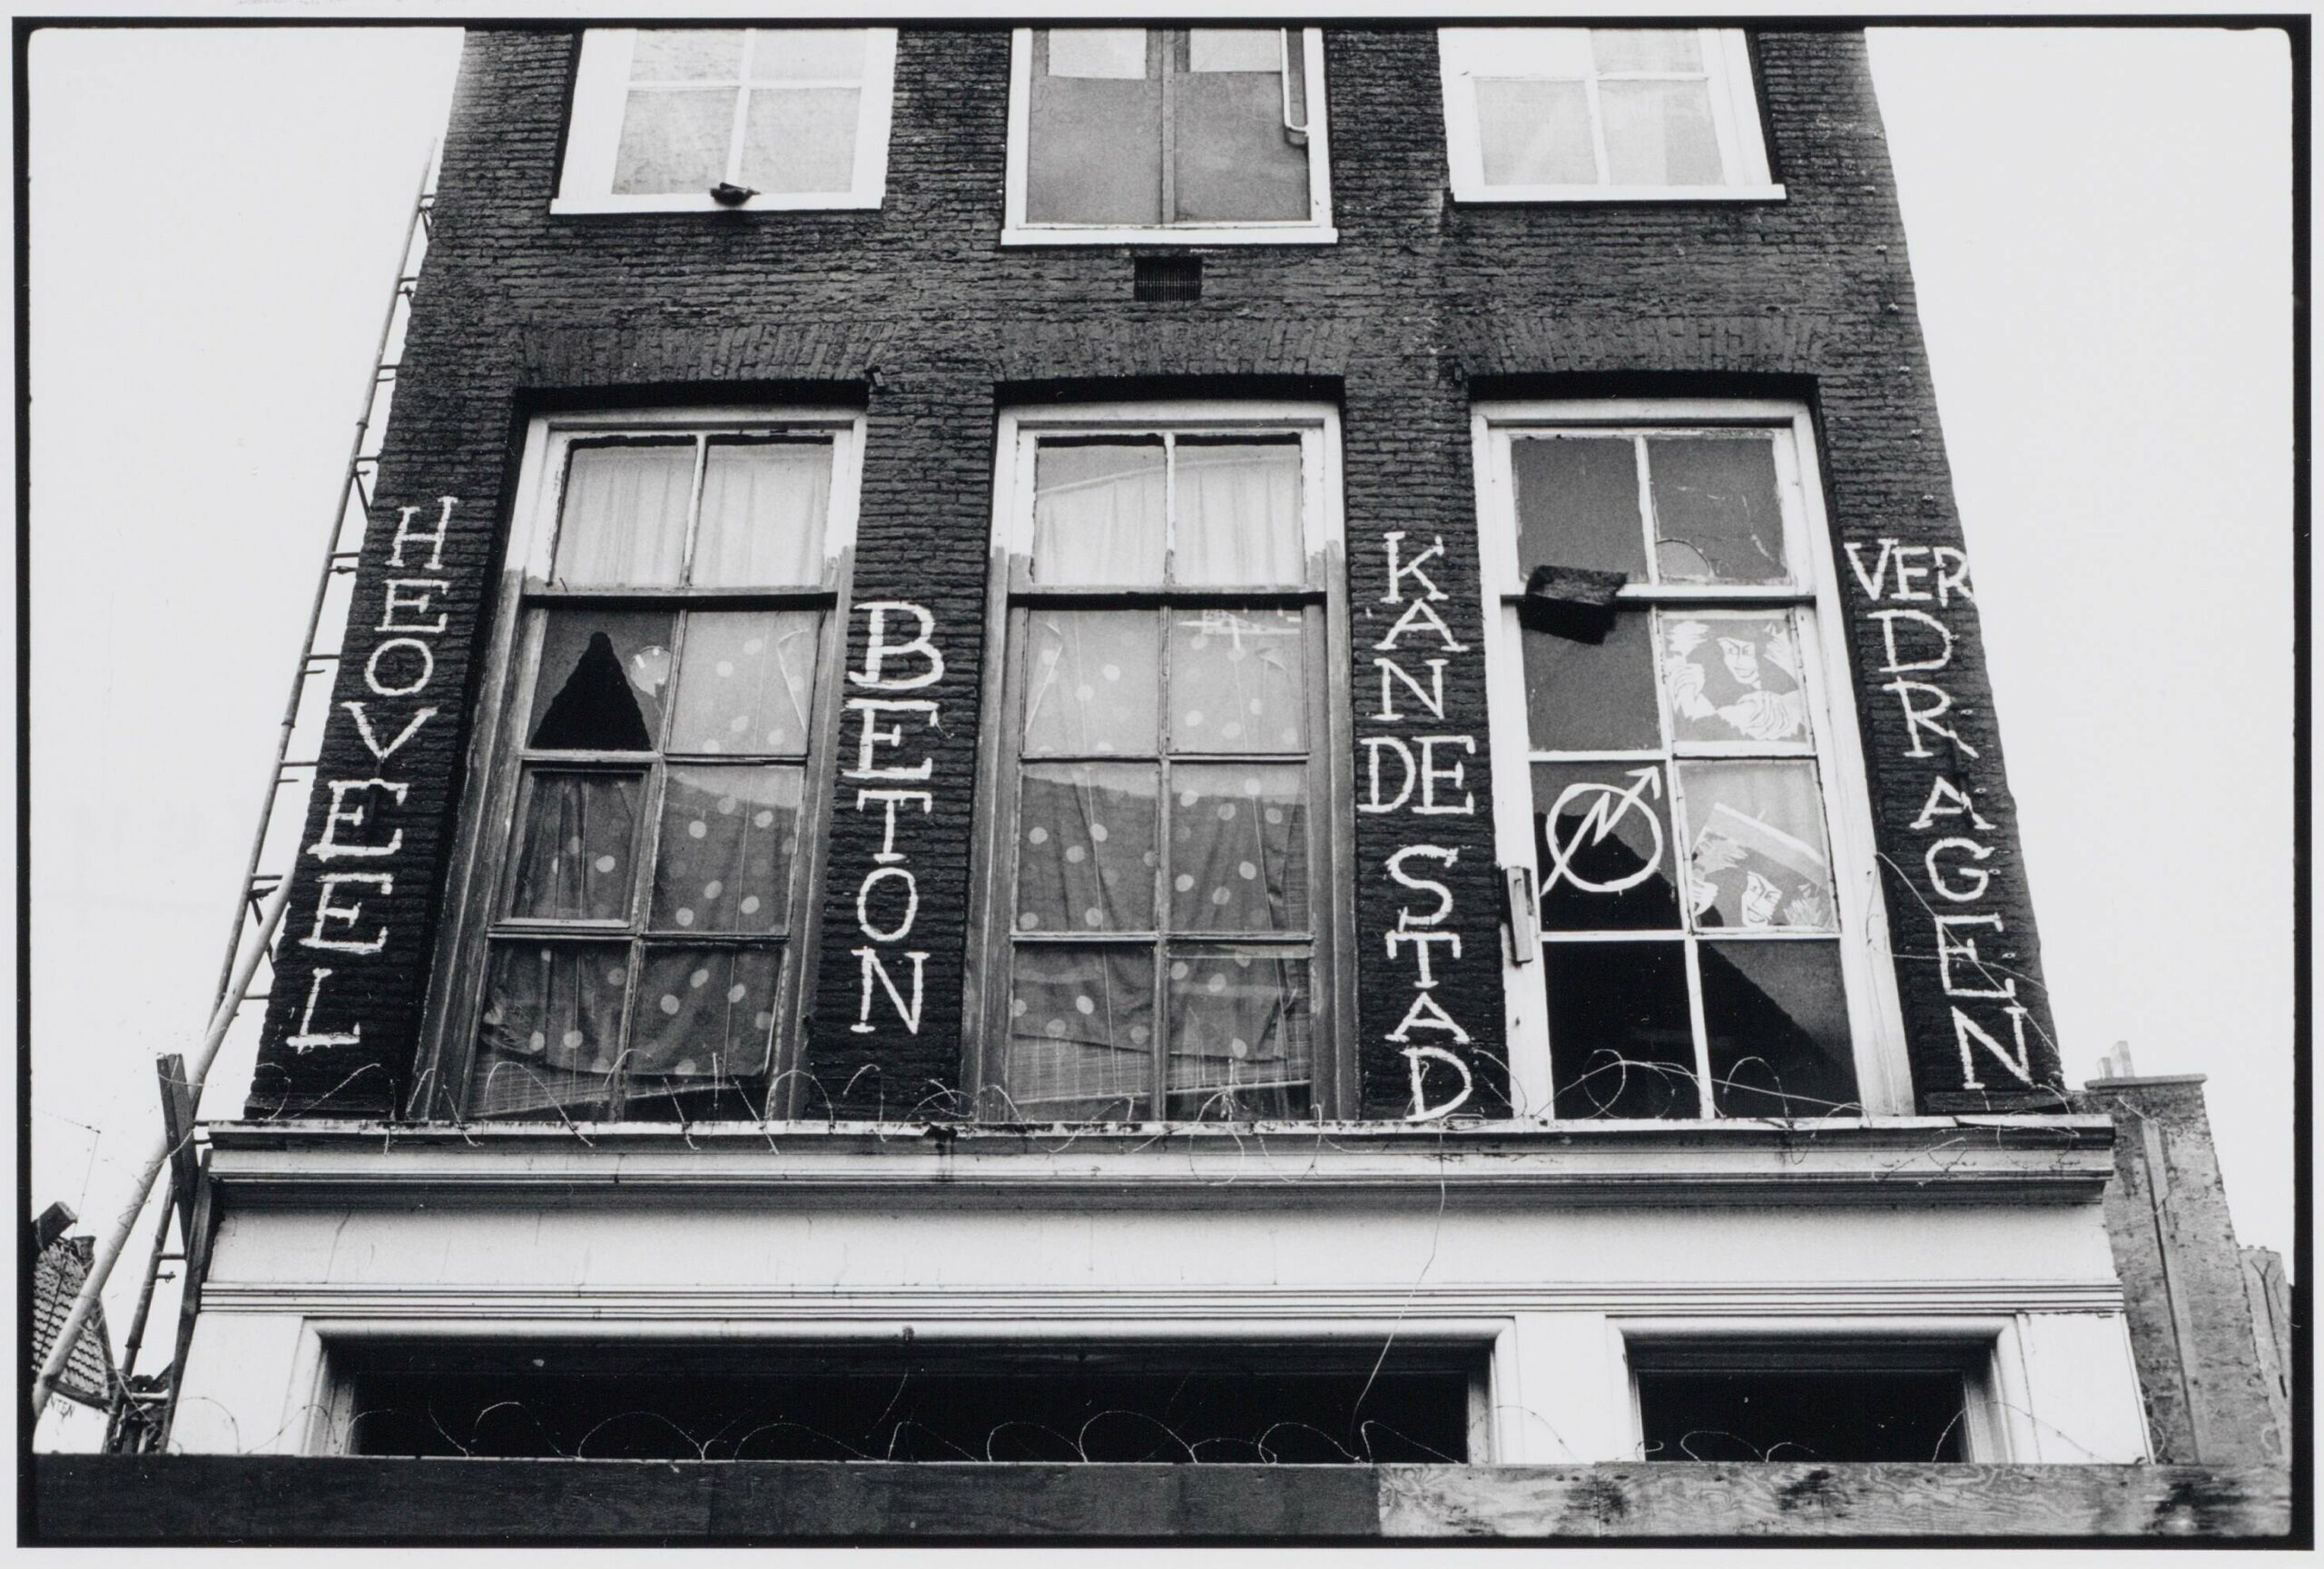 HEOVEEL
BETON
KAN DE STAD
VERDRAGEN